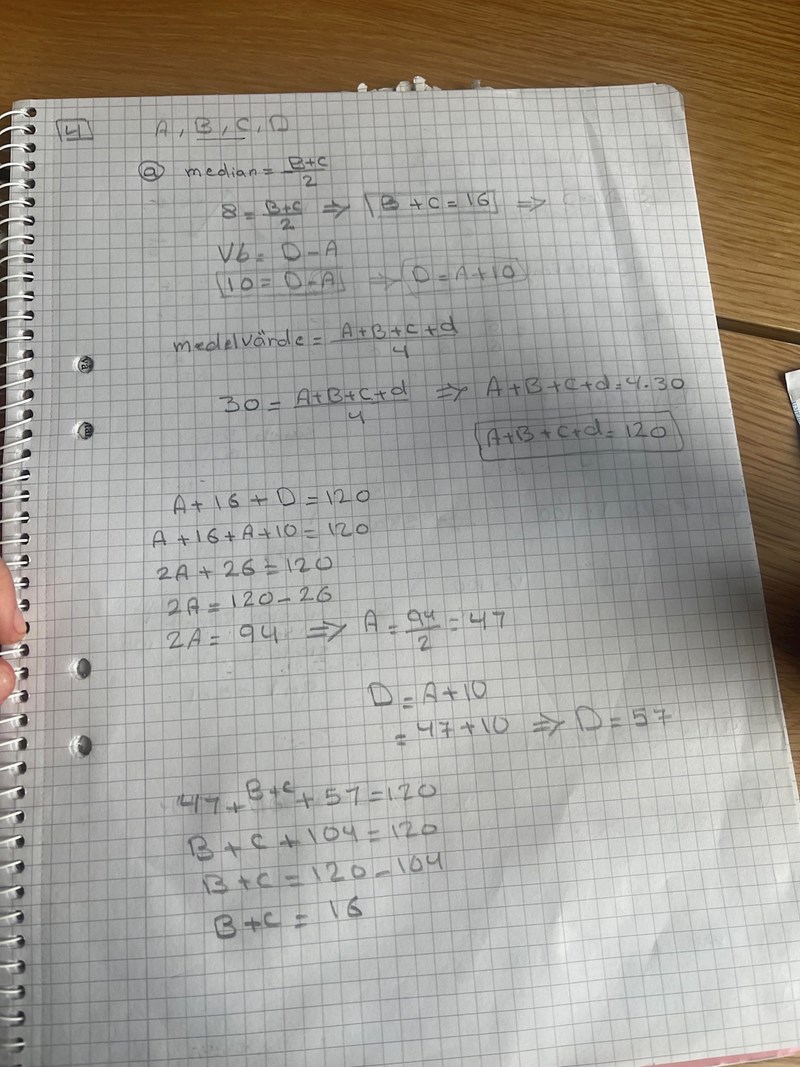 4 A, B, C, D
a median = B+C/2
8 = B+C/2 ⇒ B + C = 16 ⇒
Vb = D - A
10 = D-A ⇒ D = A + 10
medelvärde = A+B+C+d/4
30 = A+B+C+d/4 ⇒ A+B+C+d = 4·30
A+B+C+d = 120
A + 16 + D = 120
A + 16 + A + 10 = 120
2A + 26 = 120
2A = 120 - 26
2A = 94 ⇒ A = 94/2 = 47
D = A + 10
= 47 + 10 ⇒ D = 57
47 + B+C + 57 = 120
B + C + 104 = 120
B + C = 120 - 104
B + C = 16